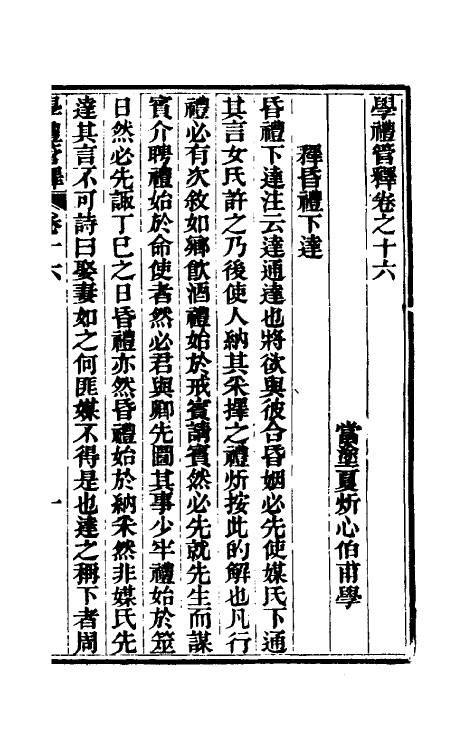 學禮管釋卷之十六
當塗夏炘心伯甫學
釋昏禮下達
昏禮下達注云達通達也將欲與彼合昏姻必先使媒氏下通
其言女氏許之乃後使人納其采擇之禮炘按此的解也凡行
禮必有次敘如鄉飲酒禮始於戒賓請賓然必先就先生而謀
賓介聘禮始於命使者然必君與卿先圖其事少牢禮始於筮
日然必先諏丁巳之日昏禮亦然昏禮始於納采然非媒氏先
達其言不可詩曰娶妻如之何匪媒不得是也達之稱下者周
學禮管釋 卷十六 一